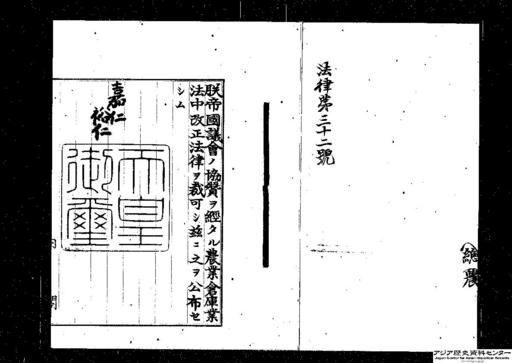 法律第三十二號
朕帝國議會ノ協贊ヲ經タル農業倉庫業
法中改正法律ヲ裁可シ茲ニ之ヲ公布セ
シム
嘉仁
裕仁
天皇
御璽
内
閣
アジア歴史資料センター
Japan Center for Asian Historical Records